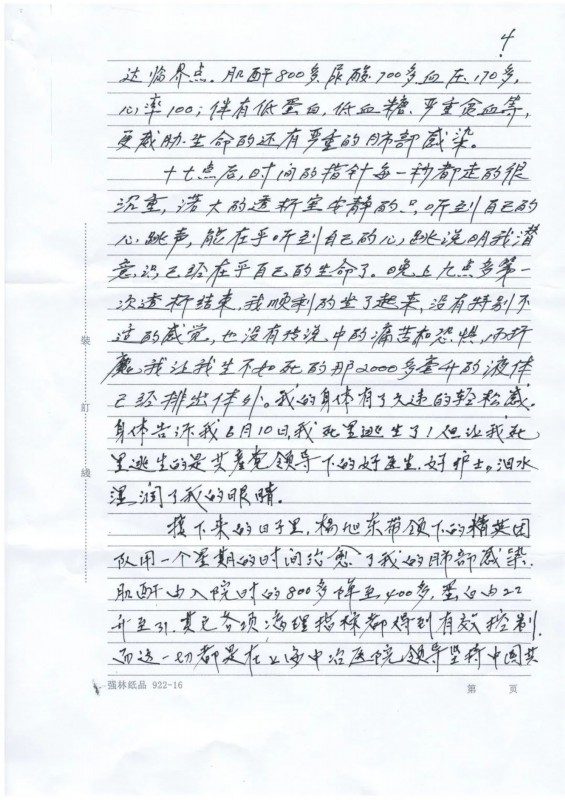 4
达临界点。肌酐800多,尿酸700多血压170多,
心率100;伴有低蛋白,低血糖、严重贫血等,
更威胁生命的还有严重的肺部感染。
十七点后,时间的指针每一秒都走的很
沉重,诺大的透析室安静的只听到自己的
心跳声,能在乎听到自己的心跳说明我潜
意识已经在乎自己的生命了。晚上九点多第一
次透析结束,我顺利的坐了起来,没有特别不
适的感觉,也没有传说中的痛苦和恐惧,而折
磨我让我生不如死的那2000多毫升的液体
已经排出体外。我的身体有了久违的轻松感。
身体告诉我6月10日,我死里逃生了!但让我死
里逃生的是共产党领导下的好医生,好护士。泪水
湿润了我的眼睛。
接下来的日子里,杨旭东带领下的精英团
队用一个星期的时间治愈了我的肺部感染。
肌酐由入院时的800多降至400多,蛋白由22
升至31,其它各项病理指标都得到有效控制,
而这一切都是在上海中冶医院领导坚持中国共
装
订
线
强林纸品 922-16
第 页